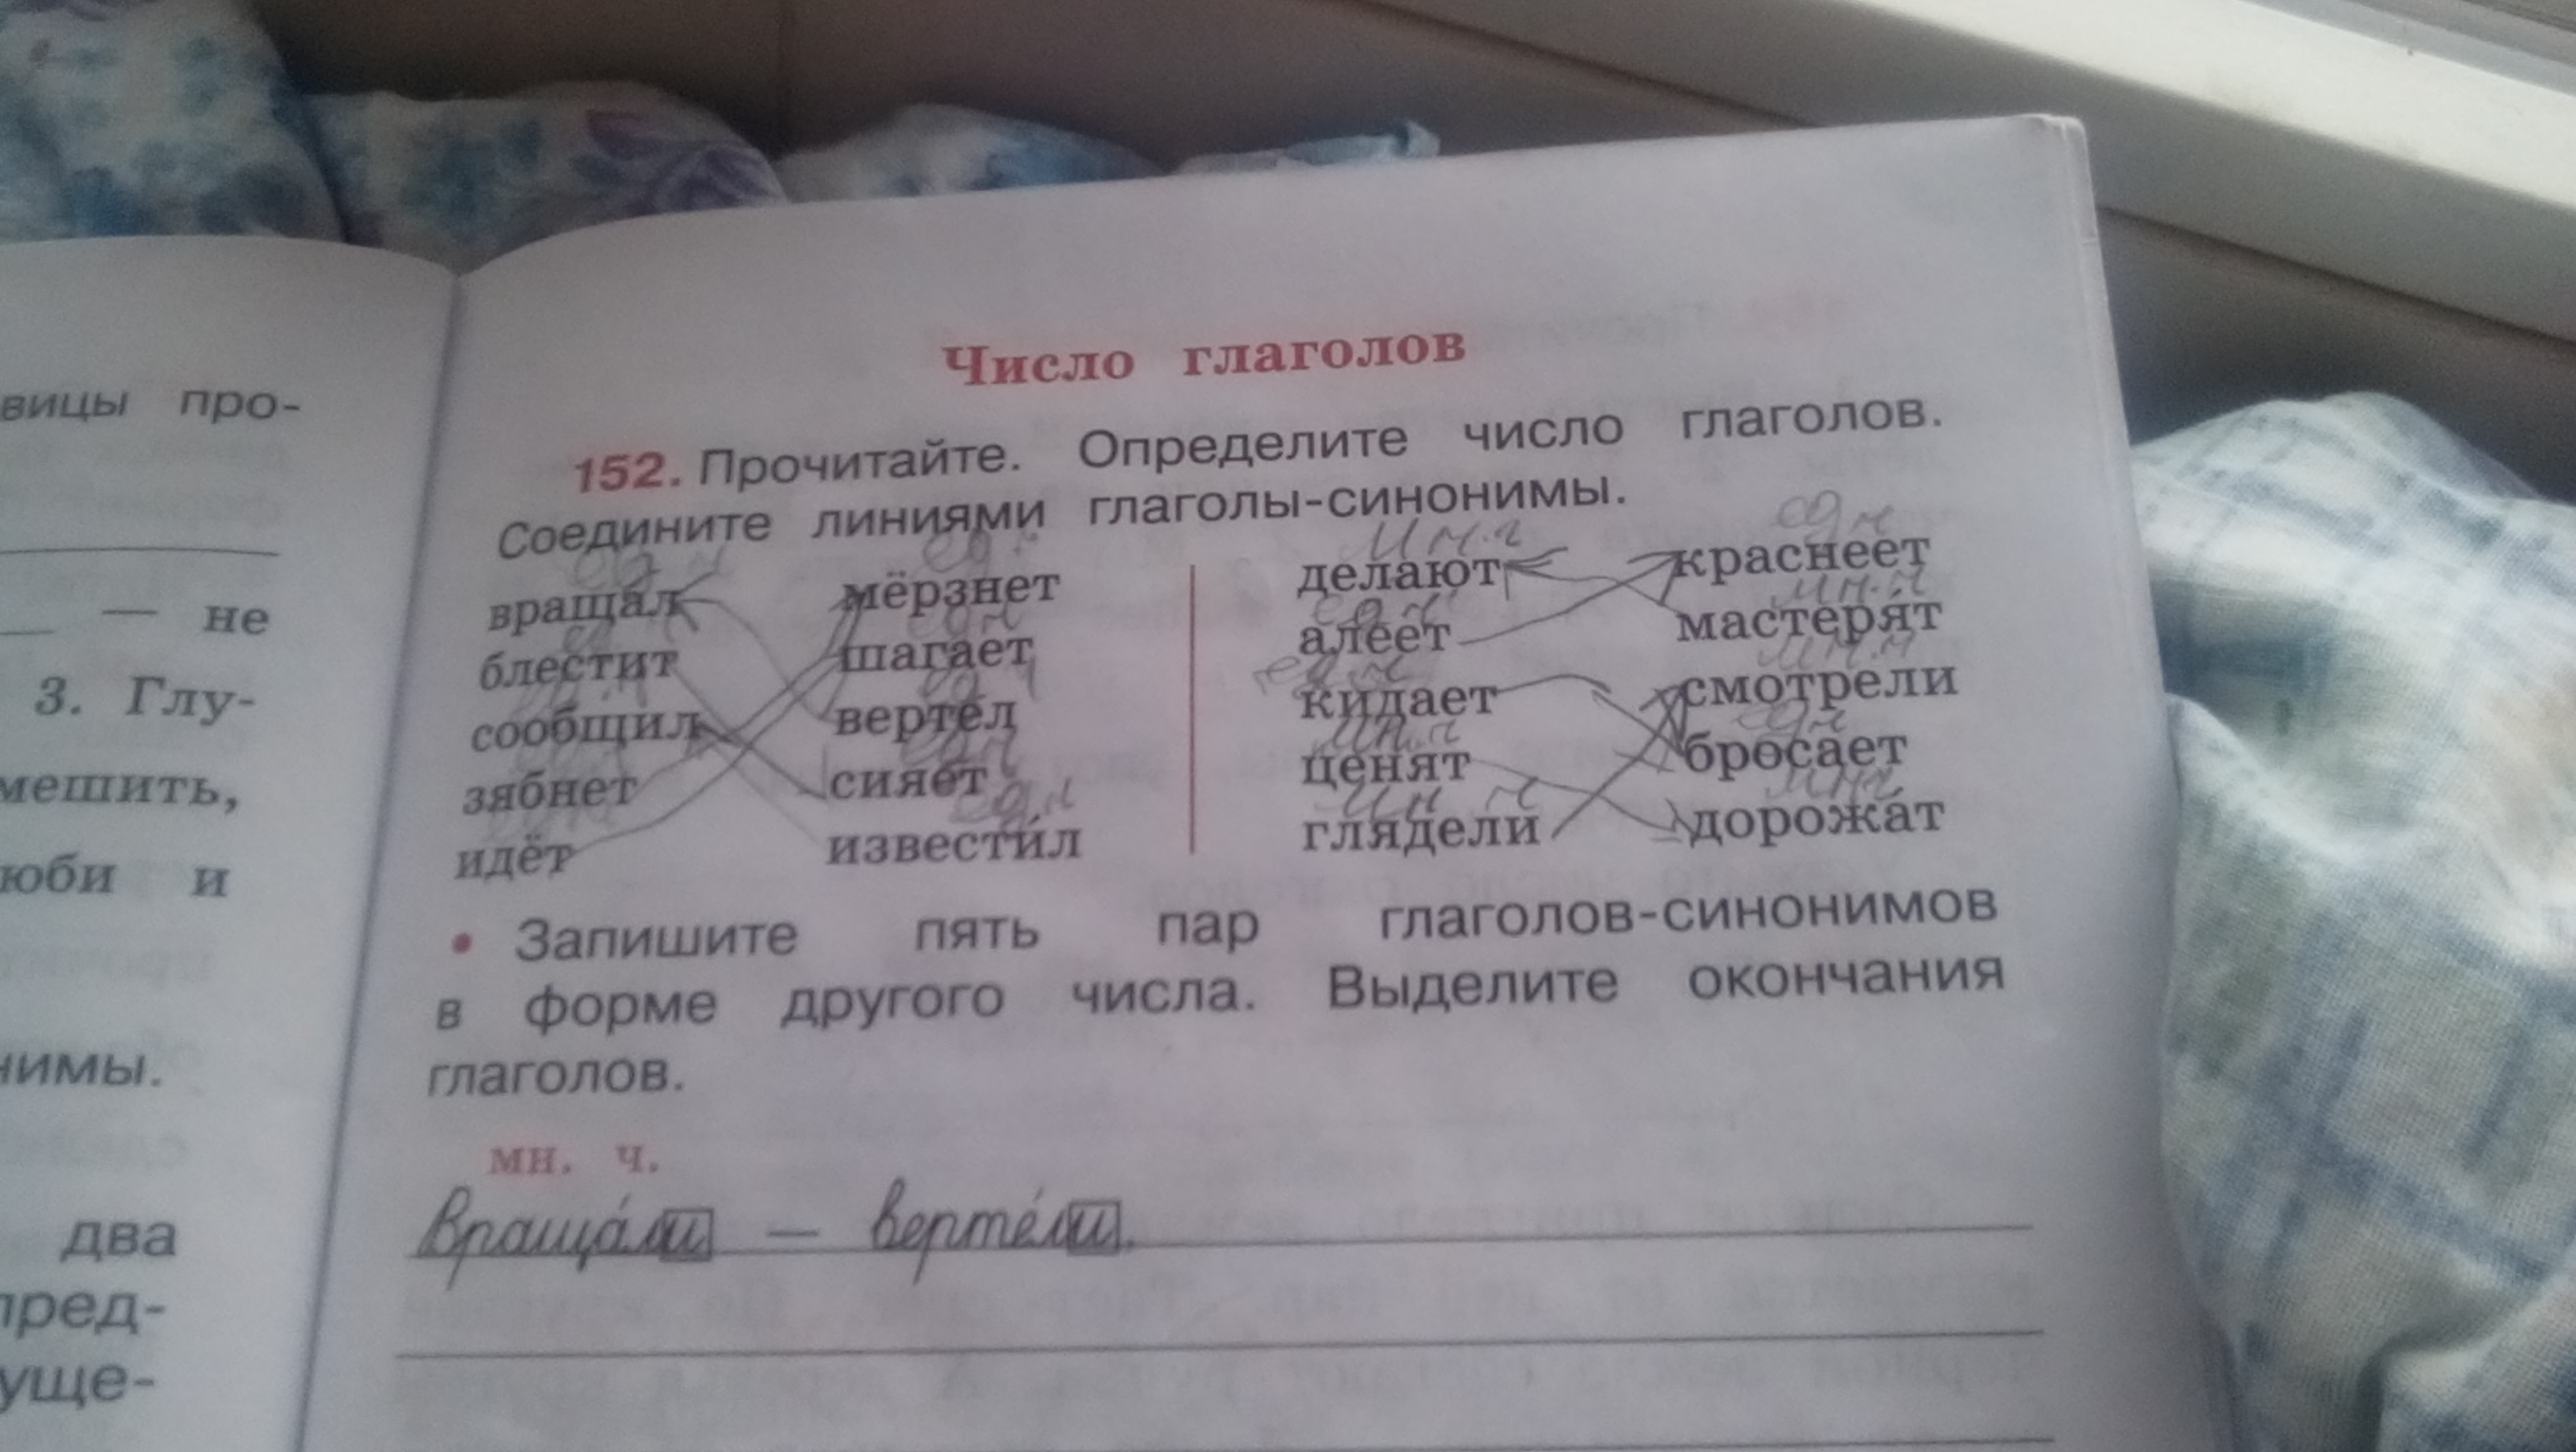 вицы про-
— не
3. Глу-
мешить,
юби и
нимы.
два
пред-
уще-
Число глаголов
152. Прочитайте. Определите число глаголов.
Соедините линиями глаголы-синонимы.
ед ч ед. мн.ч ед ч
вращал мёрзнет делают краснеет
ед ч ед ч мн.ч
блестит шагает алеет мастерят
ед ед.ч мн.ч
сообщил вертел кидает смотрели
ед ч мн.ч ед ч
зябнет сияет ценят бросает
ед.ч мн ч мн ч
идёт известил глядели дорожат
• Запишите пять пар глаголов-синонимов
в форме другого числа. Выделите окончания
глаголов.
мн. ч.
Враща́ли — верте́ли.